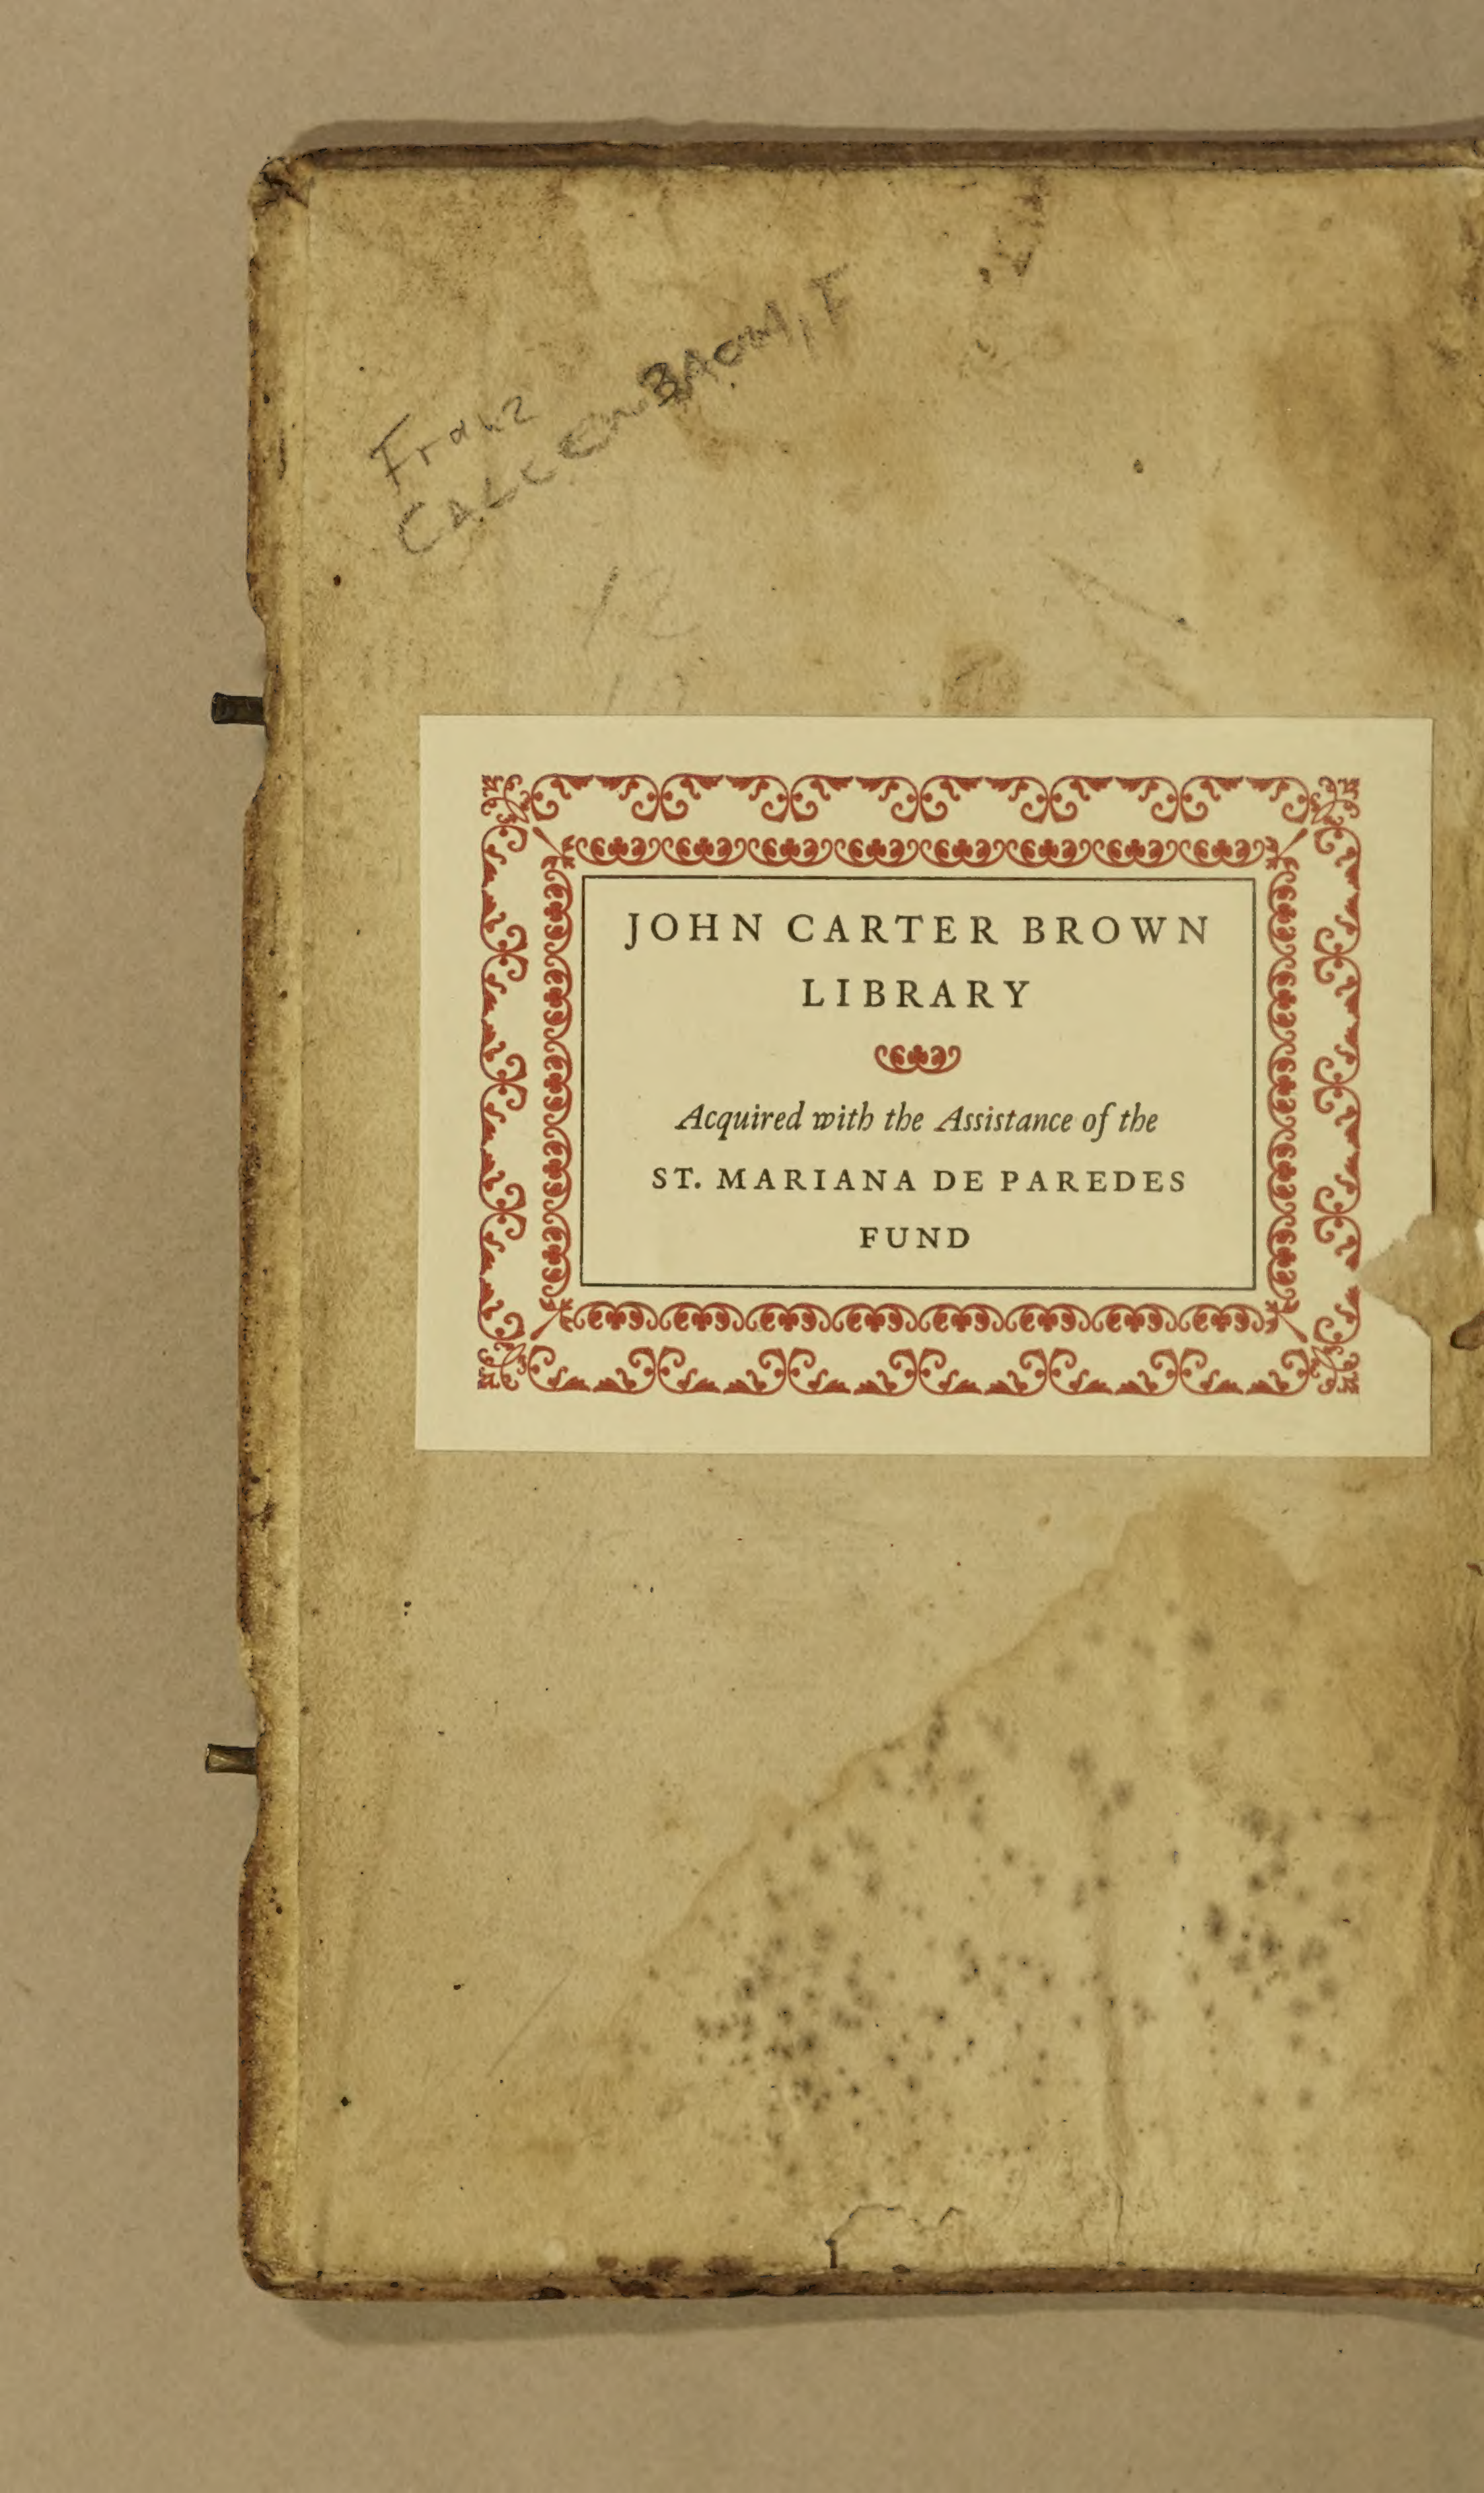 Franz
JOHN CARTER BROWN
LIBRARY
Acquired with the Assistance of the
ST. MARIANA DE PAREDES
FUND